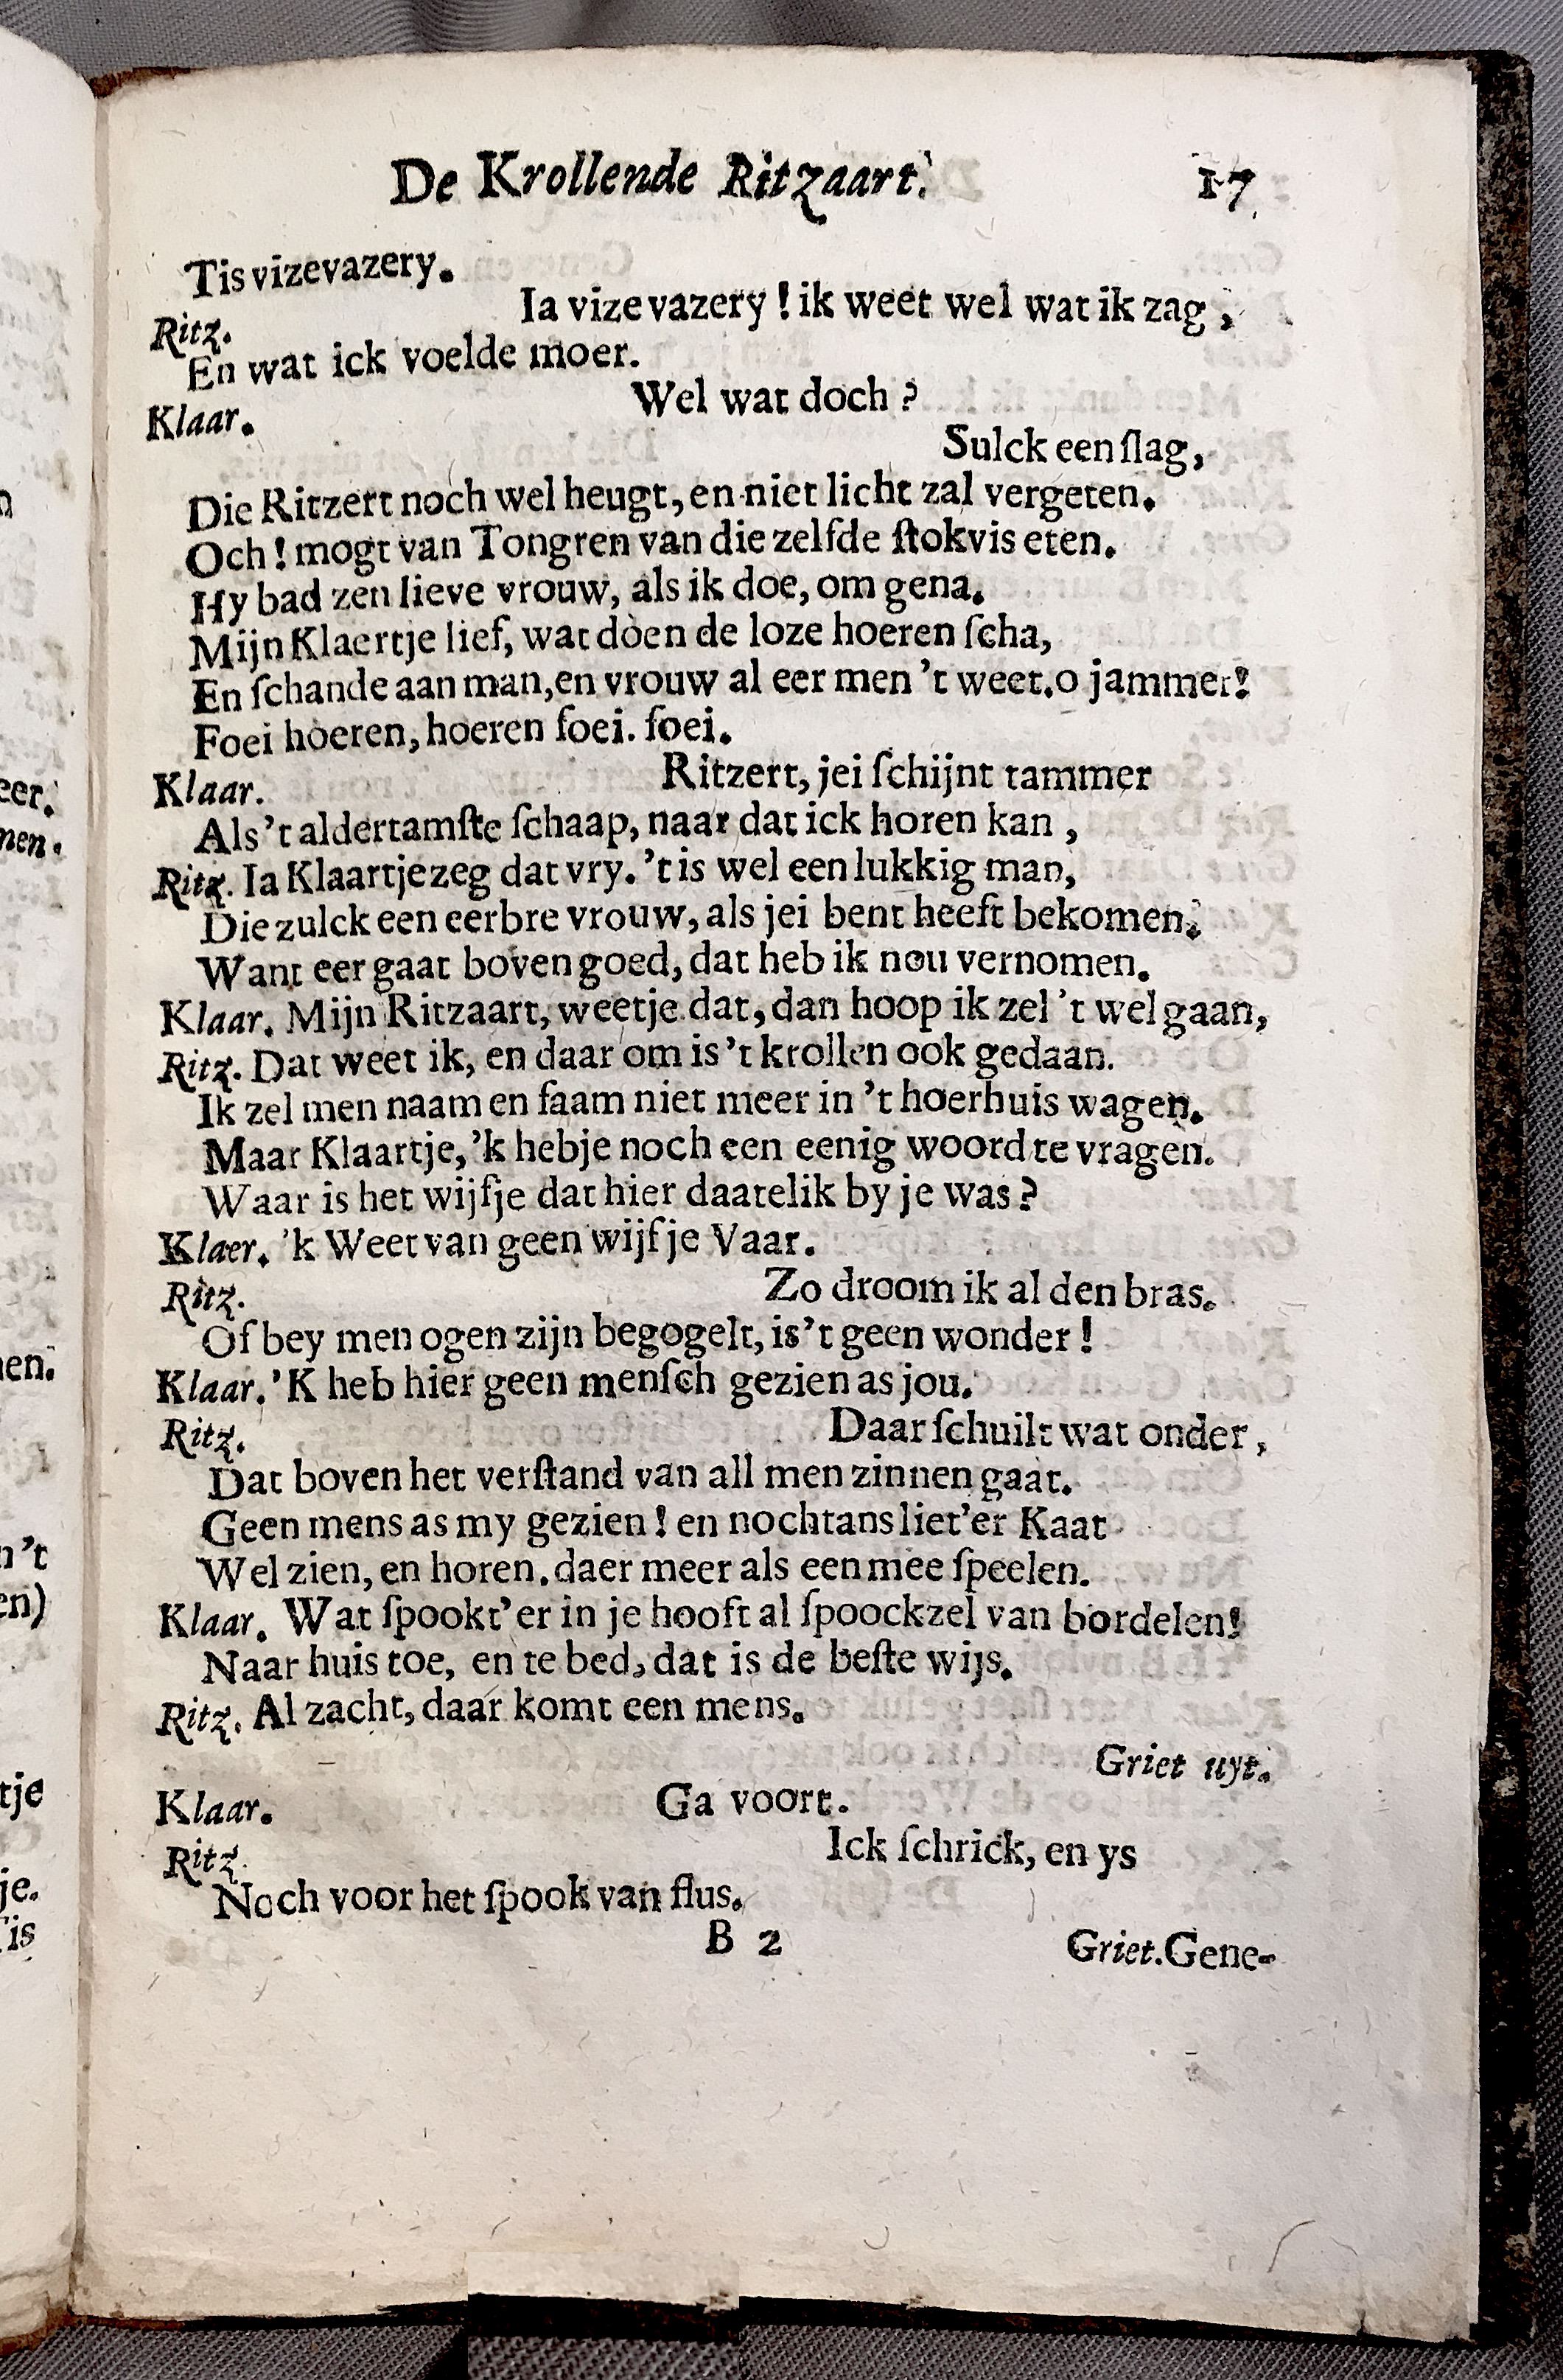 De Krollende Ritzaart. 17
Tis vizevazery.
Ritz. Ia vizevazery! ik weet wel wat ik zag,
En wat ick voelde moer.
Klaar. Wel wat doch?
Sulck een ſlag,
Die Ritzert noch wel heugt, en niet licht zal vergeten.
Och! mogt van Tongren van die zelfde ſtokvis eten.
Hy bad zen lieve vrouw, als ik doe, om gena.
Mijn Klaertje lief, wat doen de loze hoeren ſcha,
En ſchande aan man, en vrouw al eer men 't weet. o jammer!
Foei hoeren, hoeren foei. foei.
Klaar. Ritzert, jei ſchijnt tammer
Als 't aldertamſte ſchaap, naar dat ick horen kan,
Ritz. Ia Klaartje zeg dat vry. 't is wel een lukkig man,
Die zulck een eerbre vrouw, als jei bent heeft bekomen.
Want eer gaat boven goed, dat heb ik nou vernomen.
Klaar. Mijn Ritzaart, weetje dat, dan hoop ik zel 't wel gaan,
Ritz. Dat weet ik, en daar om is 't krollen ook gedaan.
Ik zel men naam en faam niet meer in 't hoerhuis wagen.
Maar Klaartje, 'k hebje noch een eenig woord te vragen.
Waar is het wijfje dat hier daatelik by je was?
Klaer. 'k Weet van geen wijfje Vaar.
Ritz. Zo droom ik al den bras.
Of bey men ogen zijn begogelt, is 't geen wonder!
Klaar. 'K heb hier geen menſch gezien as jou.
Ritz. Daar ſchuilt wat onder,
Dat boven het verſtand van all men zinnen gaat.
Geen mens as my gezien! en nochtans liet'er Kaat
Wel zien, en horen. daer meer als een mee ſpeelen.
Klaar. Wat ſpookt'er in je hooft al ſpoockzel van bordelen!
Naar huis toe, en te bed, dat is de beſte wijs.
Ritz. Al zacht, daar komt een mens.
Griet uyt.
Klaar. Ga voort.
Ritz. Ick ſchrick, en ys
Noch voor het ſpook van flus.
B 2 Griet. Gene-